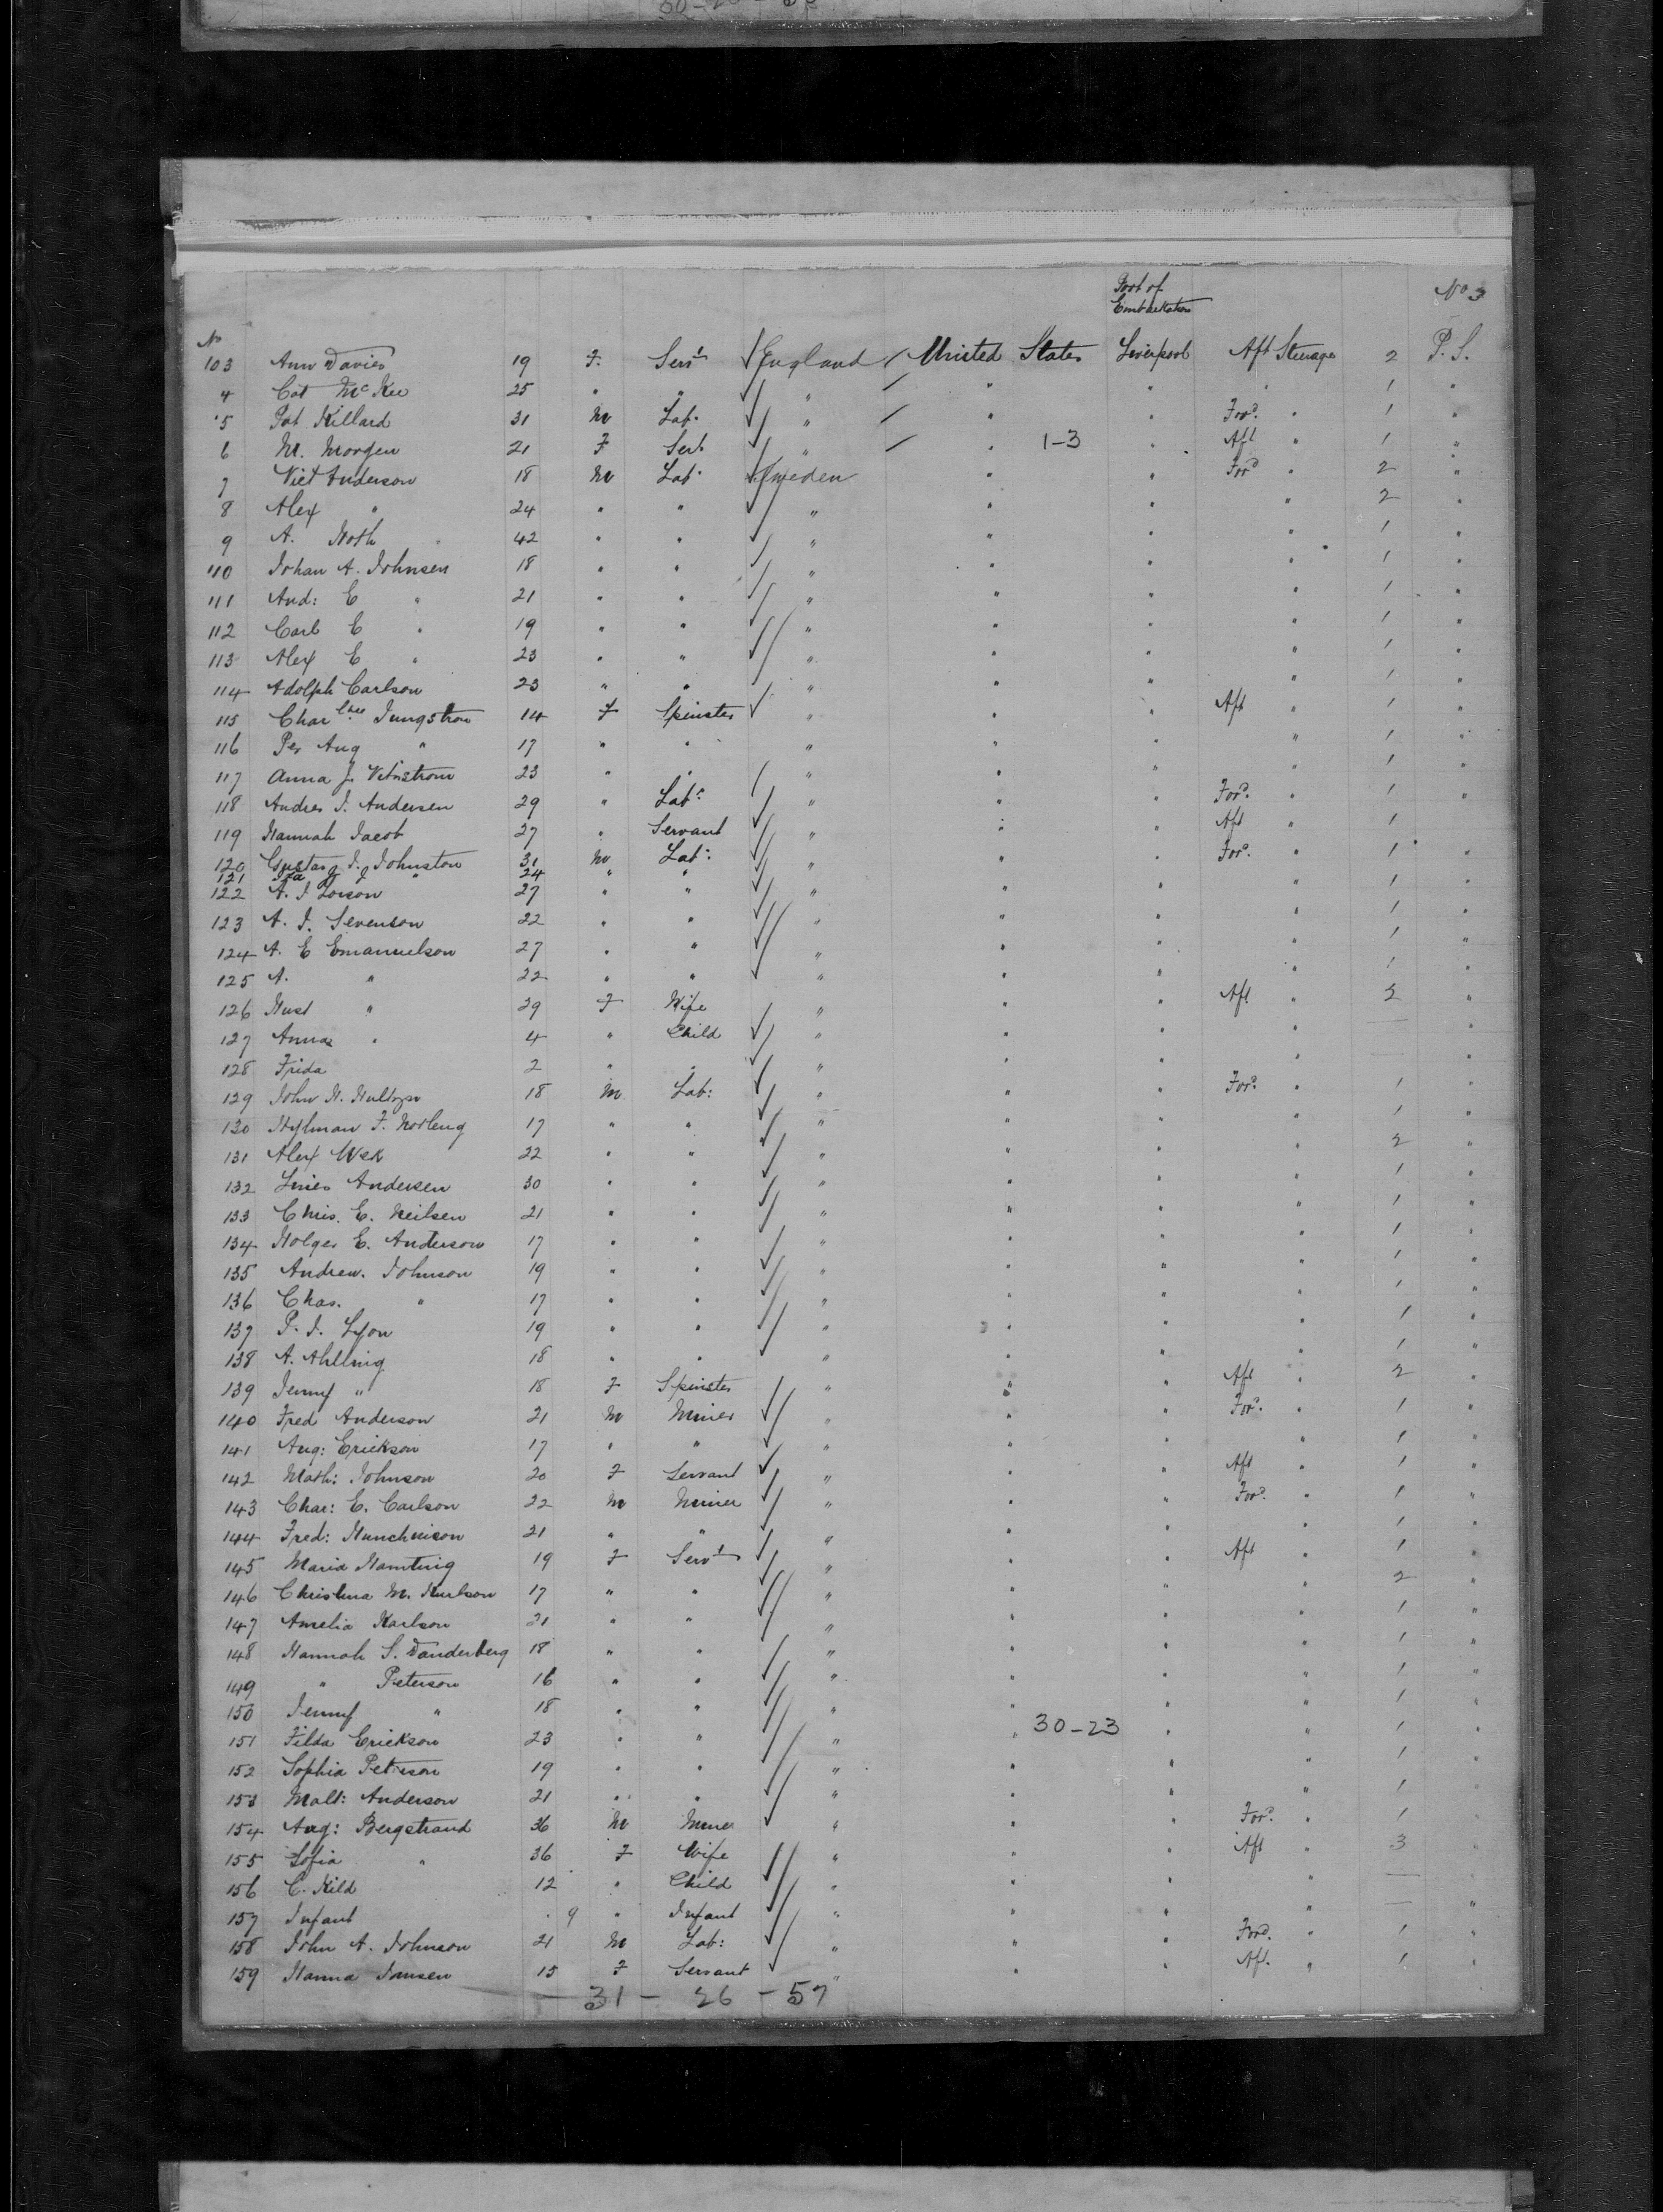 Port of
Embarkation
No 3
No
103 Ann Davies 19 F. Servt England United States Liverpool Aft Steerage 2 P. S.
4 Cat McKee 25 " " " " " " 1 "
5 Pat Killard 31 M Lab. " " " Ford. " 1 "
6 M. Morgen 21 F Serv. " " 1-3 " Aft " 1 "
7 Vict Anderson 18 M Lab. Sweden " " Ford " 2 "
8 Alex " 24 " " " " " " 2 "
9 A. Noth 42 " " " " " " 1 "
110 Johan A. Johnsen 18 " " " " " " 1 "
111 And: E " 21 " " " " " " 1 "
112 Carl E " 19 " " " " " " 1 "
113 Alex E " 23 " " " " " " 1 "
114 Adolph Carlson 23 " " " " " " 1 "
115 Char Jungstrom 14 F Spinster " " " Aft " 1 "
116 Per Aug " 17 " " " " " " 1 "
117 Anna J. 23 " " " " " " 1 "
118 Andres J. Andersen 29 " Labr " " " Ford. " 1 "
119 Hannah Jacob 27 " Servant " " " Aft " 1
120 Gustaf J. Johnston 31 M Lab: " " Ford. " 1 "
121 " 24 " "
122 A. J Larson 27 " " " " " " 1 "
123 A. J. Sevenson 22 " " " " " " 1 "
124 A. E Emanuelson 27 " " " " " " 1 "
125 A. " 22 " " " " " " 1 "
126 " 29 F Wife " " " Aft " 2 "
127 Anna " 4 " Child " " " " — "
128 Frida 2 " " " " " " — "
129 John H. 18 M Lab: " " " Ford. " 1 "
130 Hylman F. Norleng 17 " " " " " " 1 "
131 Alex 22 " " " " " " 2 "
132 Andersen 30 " " " " " " 1 "
133 Chris. E. Neilsen 21 " " " " " " 1 "
134 Holger E. Anderson 17 " " " " " " 1 "
135 Andrew. Johnson 19 " " " " " " 1 "
136 Chas. " 17 " " " " " " 1 "
137 P. J. Lyon 19 " " " " " " 1 "
138 A. Ahlling 18 " " " " " " 1 "
139 Jenny " 18 F Spinster " " " Aft " 2 "
140 Fred Anderson 21 M Miner " " " Ford. " 1 "
141 Aug: Erickson 17 " " " " " " 1 "
142 Math: Johnson 20 F Servant " " " Aft " 1 "
143 Char: E. Carlson 22 M Miner " " " Ford. " 1 "
144 Fred: 21 " " " " " " 1 "
145 Maria 19 F Servt " " " Aft " 1 "
146 Christina M. 17 " " " " " " 2 "
147 Amelia Karlson 21 " " " " " " 1 "
148 Hannah S. Danderberg 18 " " " " " " 1 "
149 " Peterson 16 " " " " " " 1 "
150 Jenny " 18 " " " " " " 1 "
151 Tilda Erickson 23 " " " " 30-23 " " 1 "
152 Sophia Peterson 19 " " " " " " 1 "
153 Malt: Anderson 21 " " " " " " 1 "
154 Aug: Bergstrand 36 M Miner " " " Ford. " 1 "
155 Sofia " 36 F Wife " " " Aft " 3 "
156 C. Hild 12 " Child " " " " — "
157 Infant 9 " Infant " " " " — "
158 John A. Johnson 21 M Lab: " " " Ford. " 1 "
159 Hanna Jonsen 15 F Servant " " " Aft. " 1 "
— 31 — 26 — 57